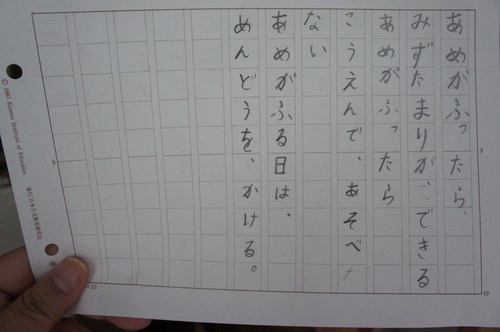 あめがふったら、
みずたまりが、できる
あめがふったら
こうえんで、あそべ
ない
あめがふる日は、
めんどうを、かける。
5
10
5
© 2002 Kumon Institute of Education